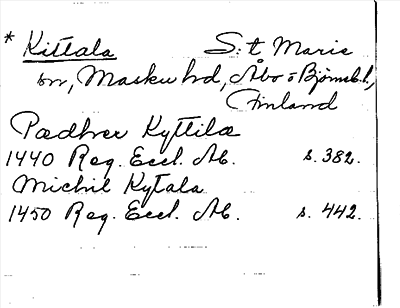 * Kittala S:t Marie
by, Masku hd, Åbo o Björneb.l.,
Finland
Padher Kyttilæ
1440 Reg. Eccl. Ab. s. 382.
Michil Kytala
1450 Reg. Eccl. Ab. s. 442.